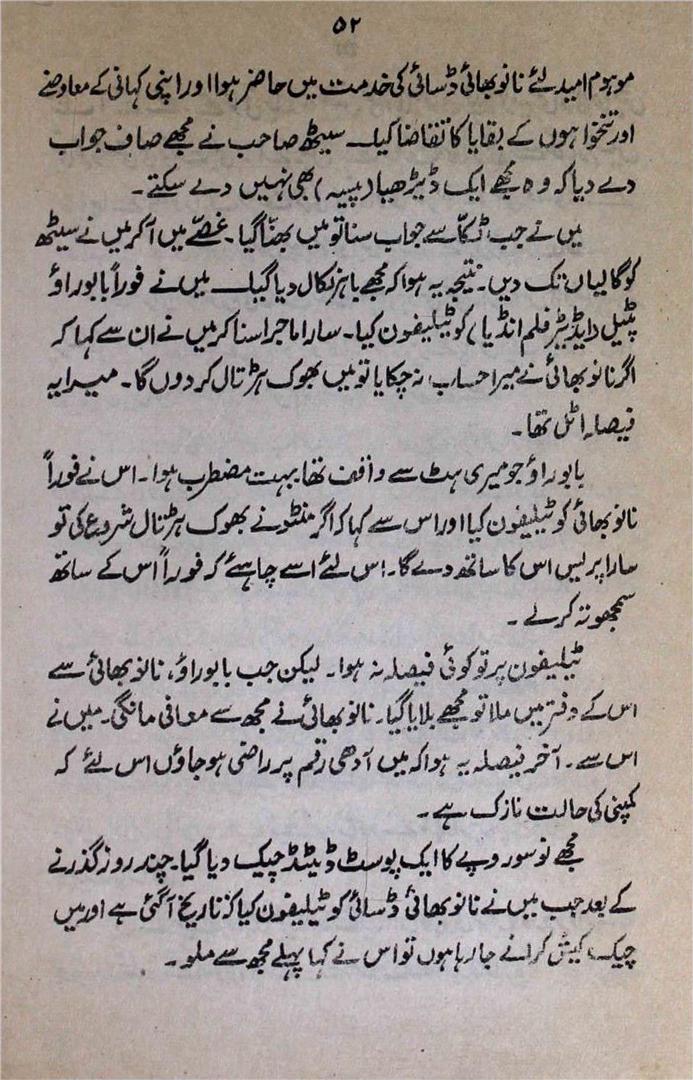 ۵۲
موہوم امید لئے نانو بھائی ڈسائی کی خدمت میں حاضر ہوا اور اپنی کہانی کے معاوضے
اور تنخواہوں کے بقایا کا تقاضا کیا۔ سیٹھ صاحب نے مجھے صاف جواب
دے دیا کہ وہ مجھے ایک ڈیڑھیا (پیسہ) بھی نہیں دے سکتے۔
میں نے جب ٹکا سے جواب سنا تو میں بھنّا گیا۔ غصّے میں آ کر میں نے سیٹھ
کو گالیاں تک دیں۔ نتیجہ یہ ہوا کہ مجھے باہر نکال دیا گیا۔ میں نے فوراً بابو راؤ
پٹیل (ایڈیٹر فلم انڈیا) کو ٹیلیفون کیا۔ سارا ماجرا سنا کر میں نے ان سے کہا کہ
اگر نانو بھائی نے میرا حساب نہ چکایا تو میں بھوک ہڑتال کر دوں گا۔ میرا یہ
فیصلہ اٹل تھا۔
بابو راؤ جو میری ہٹ سے واقف تھا بہت مضطرب ہوا۔ اس نے فوراً
نانو بھائی کو ٹیلیفون کیا اور اس سے کہا کہ اگر منٹو نے بھوک ہڑتال شروع کی تو
سارا پریس اس کا ساتھ دے گا۔ اس لئے اسے چاہئے کہ فوراً اس کے ساتھ
سمجھوتہ کرلے۔
ٹیلیفون پر تو کوئی فیصلہ نہ ہوا۔ لیکن جب بابو راؤ، نانو بھائی سے
اس کے دفتر میں ملا تو مجھے بلایا گیا۔ نانو بھائی نے مجھ سے معافی مانگی۔ میں نے
اس سے۔ آخر فیصلہ یہ ہوا کہ میں آدھی رقم پر راضی ہو جاؤں اس لئے کہ
کمپنی کی حالت نازک ہے۔
مجھے نو سو روپے کا ایک پوسٹ ڈیٹڈ چیک دیا گیا۔ چند روز گذرنے
کے بعد جب میں نے نانو بھائی ڈسائی کو ٹیلیفون کیا کہ تاریخ آ گئی ہے اور میں
چیک کیش کرانے جا رہا ہوں تو اس نے کہا پہلے مجھ سے ملو۔